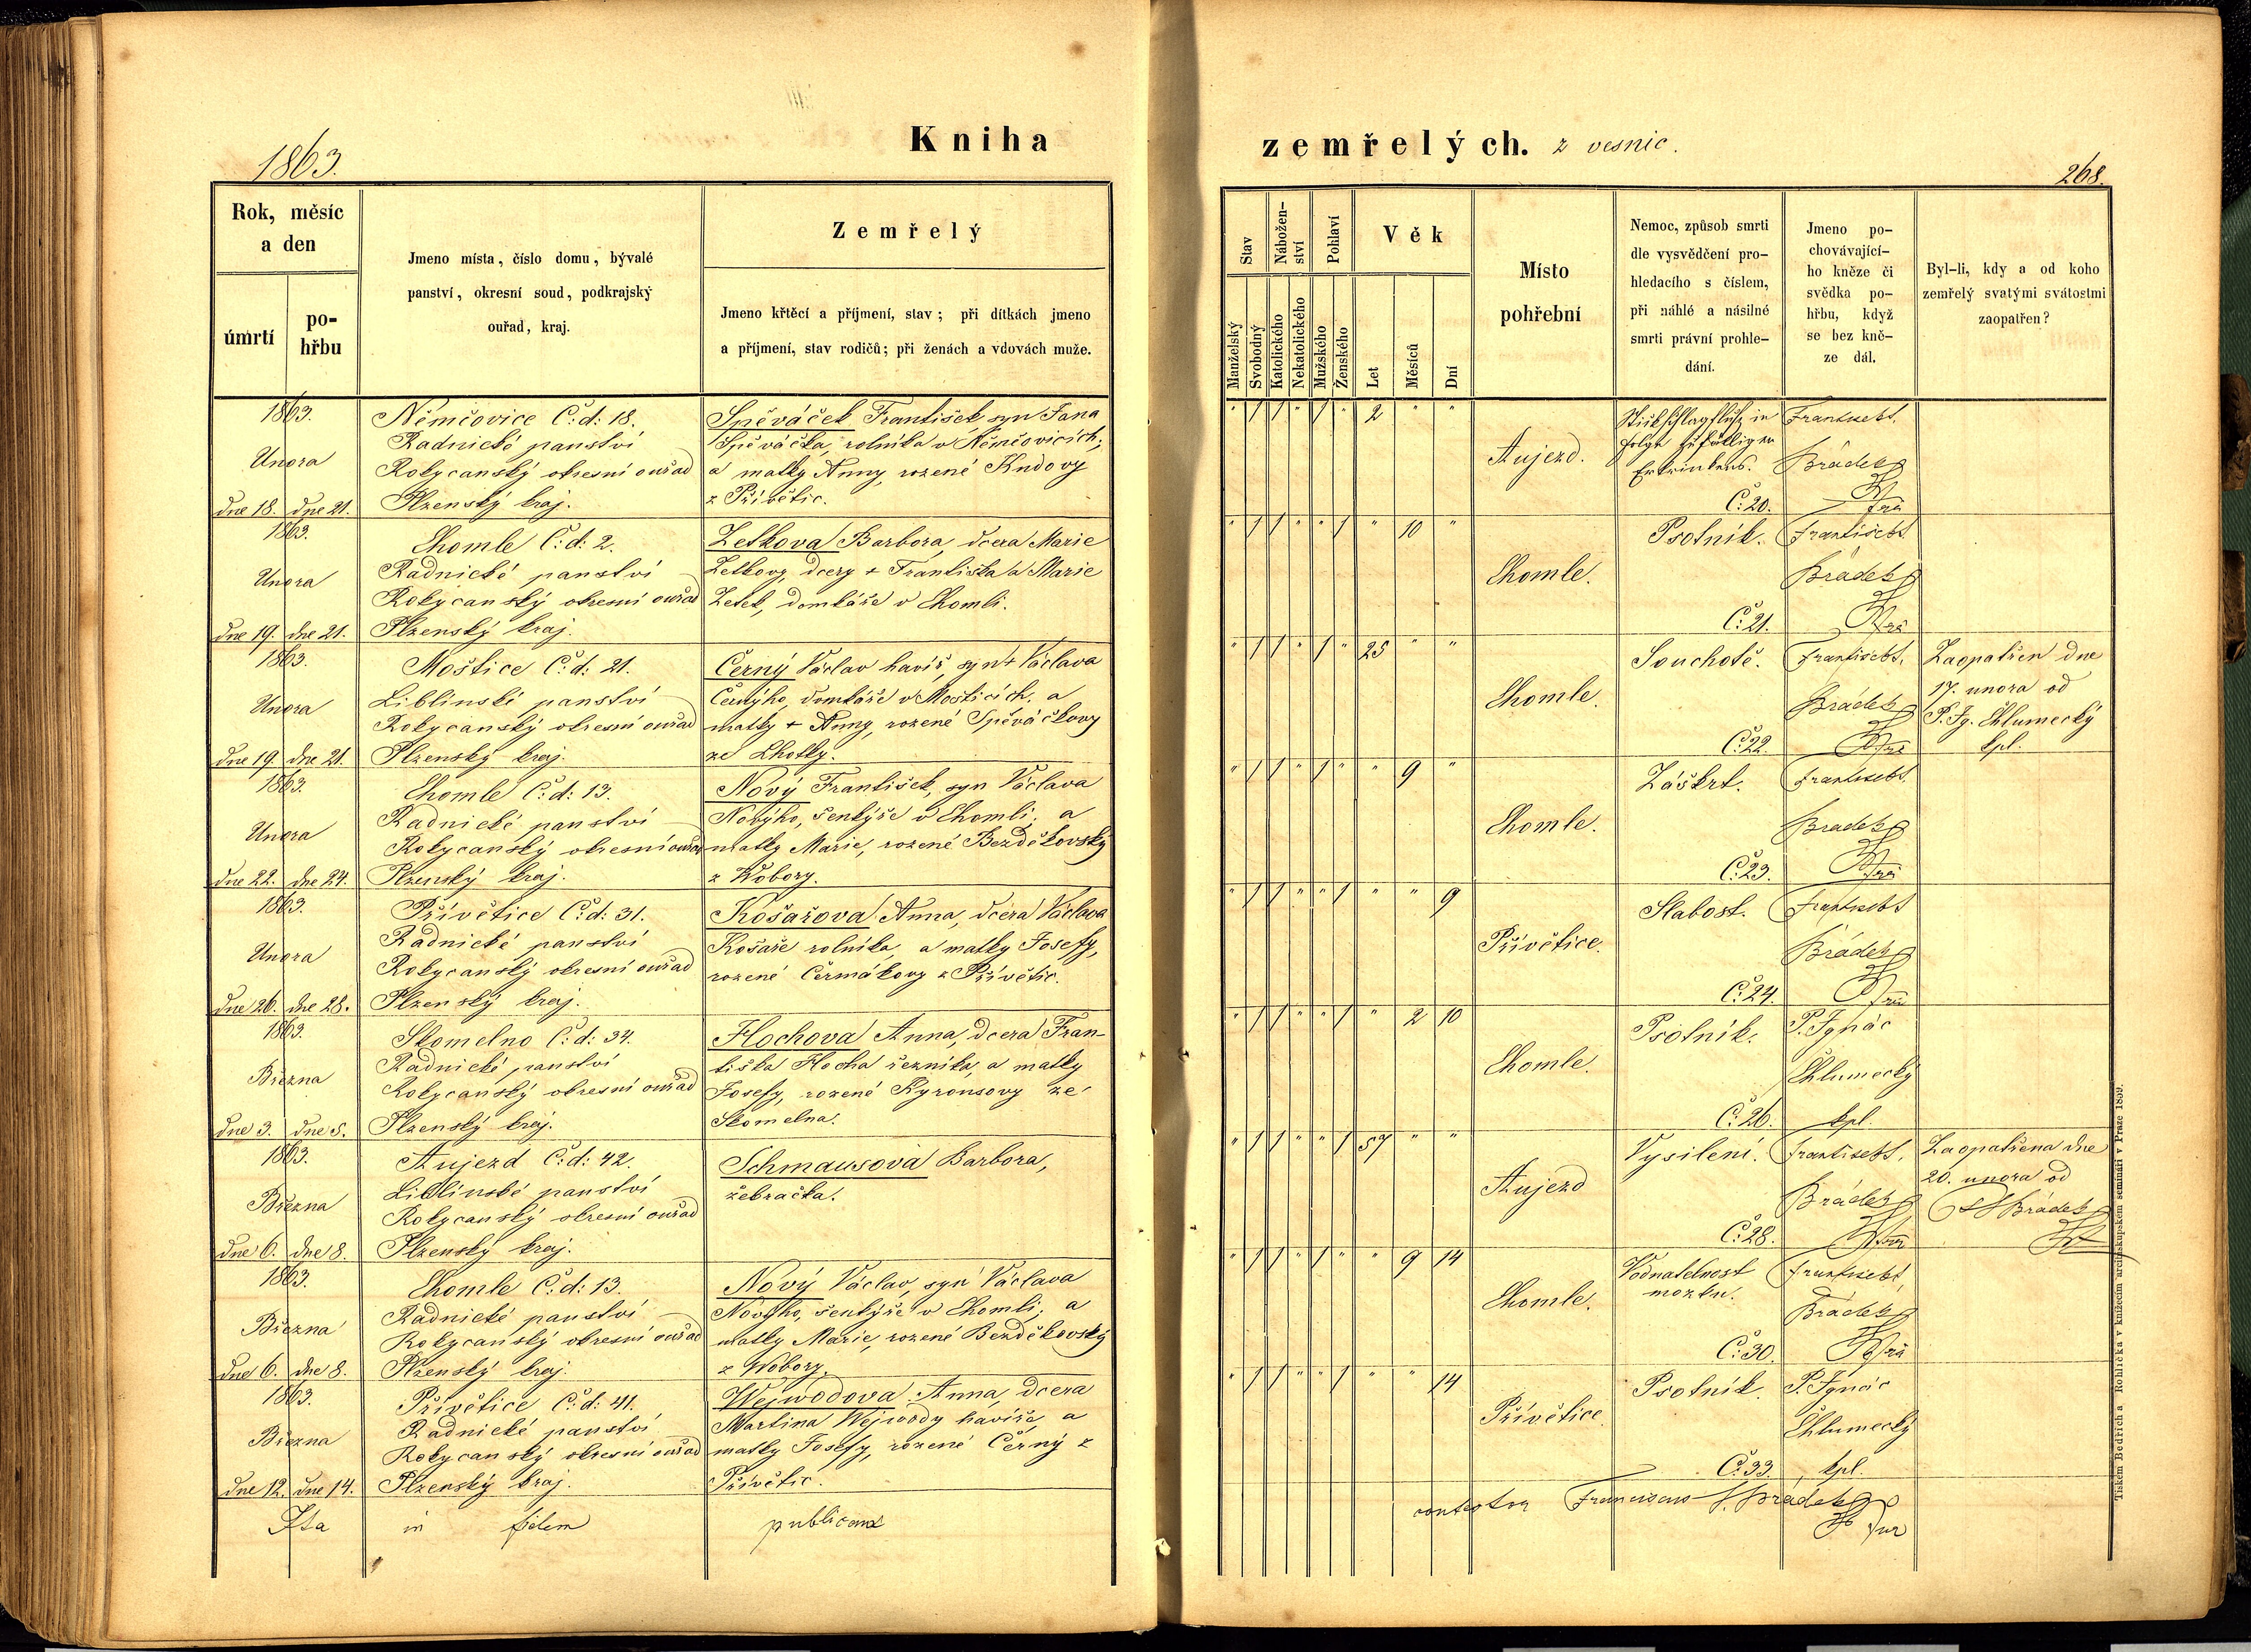 1863.
Kniha
zemřelých. z vesnic.
268.
Rok, měsíc
a den
úmrtí
po-
hřbu
Jmeno místa, číslo domu, bývalé
panství, okresní soud, podkrajský
ouřad, kraj.
Zemřelý
Jmeno křtěcí a příjmení, stav; při dítkách jmeno
a příjmení, stav rodičů; při ženách a vdovách muže.
Stav
Nábožen-
ství
Pohlaví
Věk
Manželský
Svobodný
Katolického
Nekatolického
Mužského
Ženského
Let
Měsíců
Dní
Místo
pohřební
Nemoc, způsob smrti
dle vysvědčení pro-
hledacího s číslem,
při náhlé a násilné
smrti právní prohle-
dání.
Jmeno po-
chovávající-
ho kněze či
svědka po-
hřbu, když
se bez kně-
ze dál.
Byl-li, kdy a od koho
zemřelý svatými svátostmi
zaopatřen?
1863.
Unora
dne 18. dne 21.
Němčovice Č: d: 18.
Radnické panství
Rokycanský okresní ouřad
Plzenský kraj.
Spěváček František, syn Jana
Spěváčka, rolníka v Němčovicích;
a matky Anny, rozené Kudovy
z Přívětic.
" 1 1 " 1 " 2 " "
Aujezd.
Stickschlagfluß in
Folge zufälligen
Ertrinkens.
Č: 20.
Františekt.
Brádek
1863.
Unora
dne 19. dne 21.
Chomle Č: d: 2.
Radnické panství
Rokycanský okresní ouřad
Plzenský kraj.
Zetkova Barbora, dcera Marie
Zetkovy, dcery + Františka a Marie
Zetek, domkáře v Chomli.
" 1 1 " " 1 " 10 "
Chomle.
Psotník.
Č: 21.
Františekt
Brádek
1863.
Unora
dne 19. dne 21.
Moštice Č: d: 21.
Liblínské panství
Rokycanský okresní ouřad
Plzenský kraj.
Černý Václav havíř, syn + Václava
Černýho, domkáře v Mošticích, a
matky + Anny, rozené Spěváčkovy
ze Lhotky.
" 1 1 " 1 " 25 " "
Chomle.
Souchotě.
Č: 22.
Františekt.
Brádek
Zaopatřen dne
17. unora od
P. Ig. Chlumecký
kpl.
1863.
Unora
dne 22. dne 24.
Chomle Č: d: 13.
Radnické panství
Rokycanský okresní ouřad
Plzenský kraj.
Nový František, syn Václava
Nového, šenkýře v Chomli; a
matky Marie, rozené Bezděkovský
z Wobory.
" 1 1 " 1 " " 9 "
Chomle.
Záškrt.
Č: 23.
Františekt.
Brádek
1863.
Unora
dne 26. dne 28.
Přívětice Č: d: 31.
Radnické panství
Rokycanský okresní ouřad
Plzenský kraj.
Košařova Anna, dcera Václava
Košaře rolníka, a matky Josefy,
rozené Čermákovy z Přívětic.
" 1 1 " " 1 " " 9
Přívětice.
Slabost.
Č: 24.
Františekt
Brádek
1863.
Března
dne 3. dne 5.
Skomelno Č: d: 34.
Radnické panství
Rokycanský okresní ouřad
Plzenský kraj.
Hochova Anna, dcera Fran-
tiška Hocha řezníka, a matky
Josefy, rozené Kyronsovy ze
Skomelna.
" 1 1 " " 1 " 2 10
Chomle.
Psotník.
Č: 26.
P. Ignác
Chlumecký
kpl.
1863.
Března
dne 6. dne 8.
Aujezd Č: d: 42.
Liblínské panství
Rokycanský okresní ouřad
Plzenský kraj.
Schmausová Barbora,
žebračka.
" 1 1 " " 1 57 " "
Aujezd
Vysilení.
Č: 28.
Františekt.
Brádek
Zaopatřena dne
20. unora od
Brádek
1863.
Března
dne 6. dne 8.
Chomle Č: d: 13.
Radnické panství
Rokycanský okresní ouřad
Plzenský kraj.
Nový Václav, syn Václava
Nového, šenkýře v Chomli; a
matky Marie, rozené Bezděkovský
z Wobory.
" 1 1 " 1 " " 9 14
Chomle.
Vodnatelnost
mozku.
Č: 30.
Františekt,
Brádek
1863.
Března
dne 12. dne 14.
Přívětice Č: d: 41.
Radnické panství
Rokycanský okresní ouřad
Plzenský kraj.
Wejwodova Anna, dcera
Martina Wejwody havíře, a
matky Josefy, rozené Černý z
Přívětic.
" 1 1 " " 1 " " 14
Přívětice.
Psotník.
Č: 33.
P. Ignác
Chlumecký
kpl.
Ita in fidem publicam
contestor Franciscus S. Brádek
Tiskem Bedřicha Rohlíčka v knížecím arcibiskupském semináři v Praze 1859.